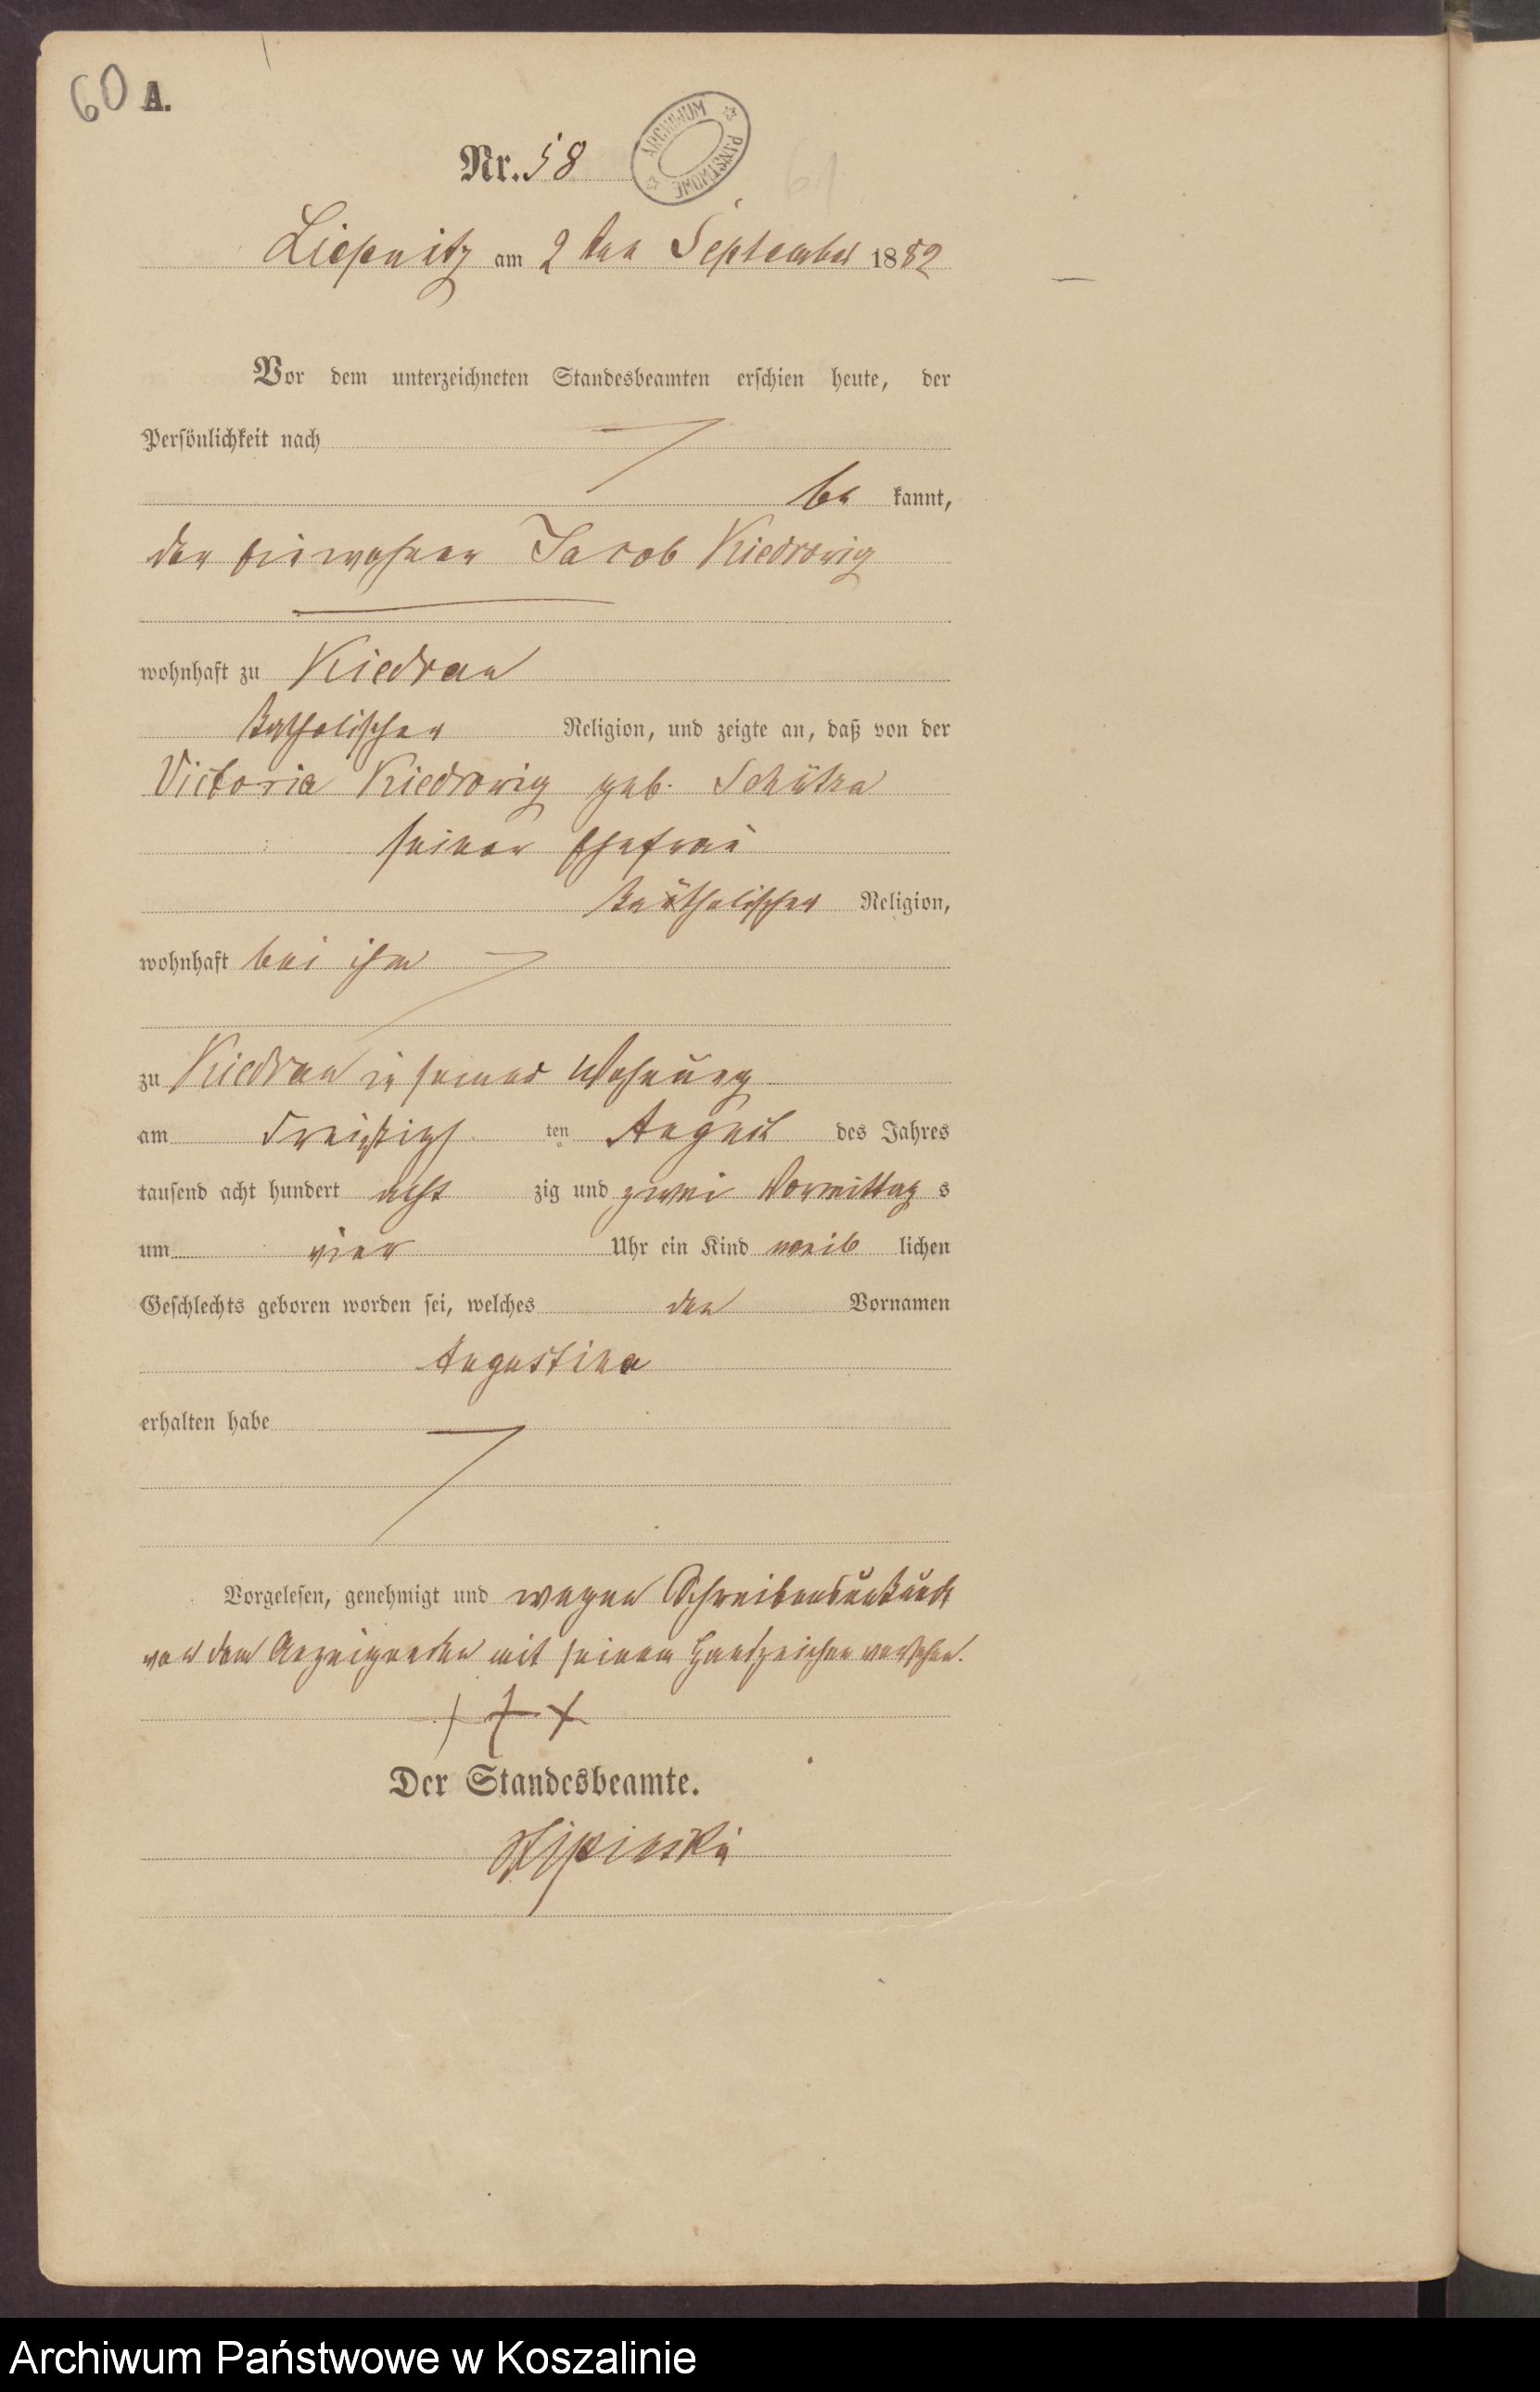 60 A.
Nr. 58
ARCHIWUM PAŃSTWOWE
61
Liepnitz am 2 ten September 1882
Vor dem unterzeichneten Standesbeamten erschien heute, der
Persönlichkeit nach
be kannt,
der Einwohner Jacob Kiedrowig
wohnhaft zu Kiedrau
katholischer Religion, und zeigte an, daß von der
Victoria Kiedrowig geb. Schütza
seiner Ehefrau
katholischer Religion,
wohnhaft bei ihm
zu Kiedrau in seiner Wohnung
am dreißigs ten August des Jahres
tausend acht hundert acht zig und zwei Vormittag s
um vier Uhr ein Kind weib lichen
Geschlechts geboren worden sei, welches den Vornamen
Augustina
erhalten habe
Vorgelesen, genehmigt und wegen Schreibensunkunde
von dem Anzeigenden mit seinem Handzeichen versehen.
+ + +
Der Standesbeamte.
Archiwum Państwowe w Koszalinie